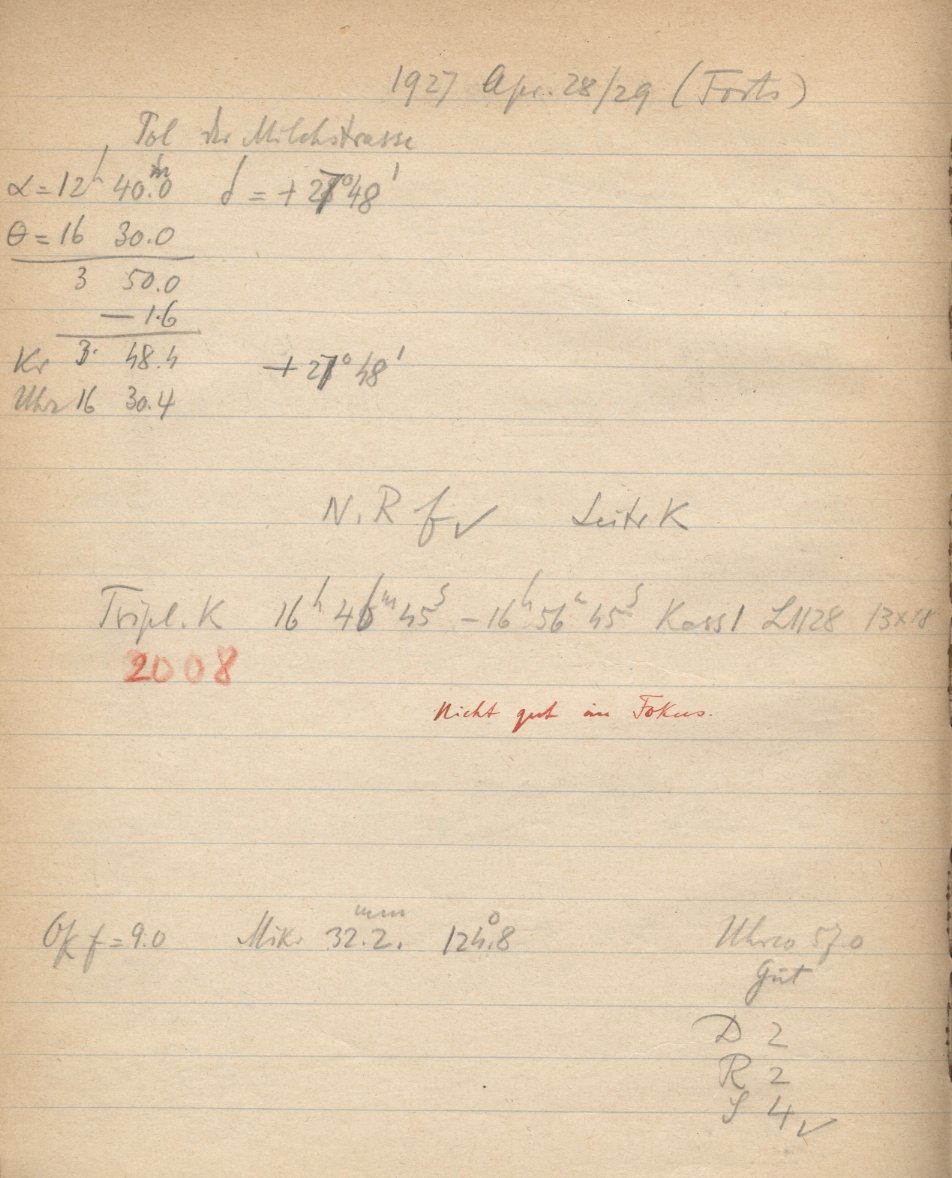 1927 Apr. 28/29 (Forts)
Pol der Milchstrasse
α = 12h 40.0m δ = + 27° 48'
θ = 16 30.0
3 50.0
— 1.6
Kr 3. 48.4 + 27° 48'
Uhr 16 30.4
N. R f ✓ Leitr K
Tripl. K 16h 46m 45s – 16h 56m 45s Kass 1 L 1128 13×18
2008
Nicht gut im Fokus.
Ok f = 9.0 Mikr 32.2mm. 124°.8
57.0
Gut
D 2
R 2
S 4 ✓